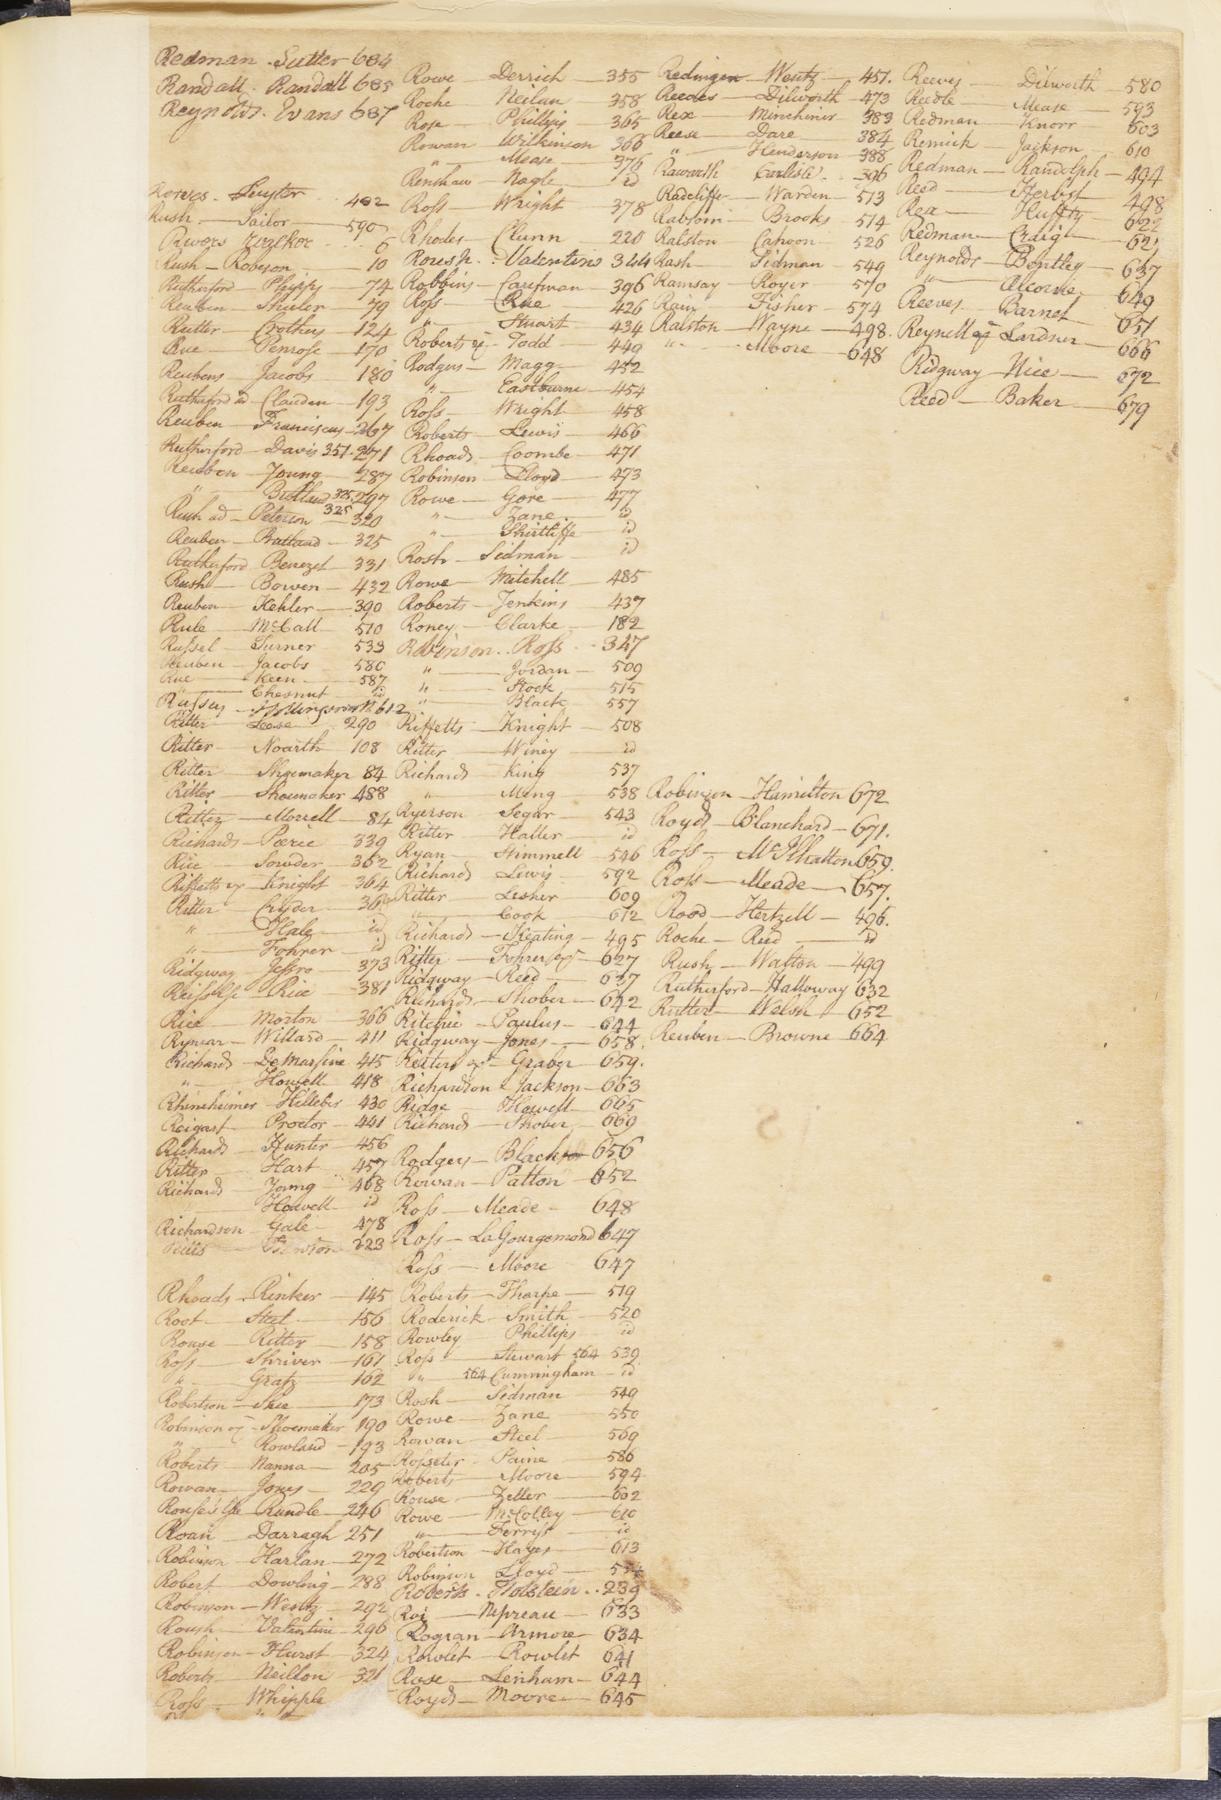 Redman - Sutter 684
Randall - Randall 685
Reynolds. Evans 687
Suyter 402
Rush — Sailor — 590
Revors Walker 6
Rush — Robeson 10
Rutherford — Phipps — 74
Reuben — Shuler — 79
Rutter — Crothers — 124
Rue — Penrose — 170
Reubens — Jacobs — 180
Rutherford ad — Clauden — 193
Reuben — Franciscus — 267
Rutherford — Davis 351-271
Reuben — Young — 287
" — 325, 297
Rush ad — Peterson 325 — 320
Reuben — Bratland — 325
Rutherford Benezet — 331
Rush — Bowen — 432
Reuben — Kehler — 390
Rule — McCall — 510
Russel — Turner — 533
Reuben — Jacobs — 580
Rue — Keen — 587
— Chesnut — id
612
Ritter — Lease — 290
Ritter — Noarth — 108
Ritter — Shoemaker 84
Ritter — Shoemaker 488
Ritter — Morrell — 84
Richards — Peerie — 339
Rice — Souder — 362
Riffetts ex — Knight — 364
Ritter — Cryder
" — Hale — id
" — Fohrer — id
Ridgway — Jessro — 373
Rice — 381
Rice — Morton — 366
Rymar — Willard — 411
Richards — De Marsine 415
" — Howell — 418
Rhineheimer — Hilleber 430
Reigart — Proctor — 441
Richard — Hunter — 456
Ritter — Hart — 457
Richards — Young — 468
— Howell — id
Richardson — Gale — 478
223
Rhoads — Rinker — 145
Root — Steel — 156
Rouse — Ritter — 158
Ross — Shriver — 161
" — Gratz — 162
Robertson — Shee — 173
Robinson ex — Shoemaker 190
" — Rowland — 193
Roberts — Hanna — 205
Rowan — Jones — 229
Rouse's Exr — Rundle — 246
Roan — Darragh 251
Robinson — Harlan — 272
Robert — Dowling — 288
Robinson — Wentz — 292
Roush — Valentine — 296
Robinson — Hurst — 324
Roberts — Neillon — 321
Ross — Whipple
Rowe — Derrick — 355
Roche — Neilan — 358
Rose — Phillips — 365
Rowan Wilkinson 366
" — Mease — 376
Renshaw — Nagle — id
Ross — Wright — 378
Rhodes — Clunn 220
Roresh. Valentine 344
Robbins — Caufman — 396
Ross — Rue — 426
" — Stuart — 434
Roberts ex — Todd — 449
Rodgers — Magg — 452
" — Eastburne — 454
Ross — Wright — 458
Roberts — Lewis — 466
Rhoads — Coombe — 471
Robinson — Lloyd — 473
Rowe — Gore — 477
" — Zane — id
" — Shirtliffe — id
Rosh — Sidman — id
Rowe — Mitchell — 485
Roberts — Jenkins — 437
Roney — Clarke — 182
Robinson.. Ross.. 347
" — Jordan — 509
" — Stock — 515
" — Black — 557
Riffetts — Knight — 508
Ritter — Winey — id
Richards — King — 537
" — Meng — 538
Ryerson — Segar — 543
Ritter — Haller — id
Ryan — Himmell — 546
Richards — Lewis — 592
Ritter — Lesher — 609
" — Cook — 612
Richards — Keating — 495
Ritter — Fohrer ex — 627
Ridgway — Reed — 637
Richards — Shober — 642
Ritchie — Paulus — 644
Ridgway — Jones — 658
Reiters ex — Graber — 659.
Richardson & Jackson — 663
Ridge — Howell — 665
Richards — Shober — 669
Rodgers — Black — 656
Rowan — Patton — 652
Ross — Meade — 648
Ross — LaGourgemond 647
Ross — Moore — 647
Roberts — Tharpe — 519
Roderick — Smith — 520
Rowley — Phillips — id
Ross — Stewart 564 539
" 564 Cunningham — id
Rosh — Sidman — 549
Rowe — Zane — 550
Rowan — Steel — 569
Rosseter — Paine — 586
Roberts — Moore — 594
Rouse — Zeller — 602
Rowe — McColley — 610
" — Ferris — id
Robertson — Hayes — 613
Robinson Lloyd —
Roberts. Holstein.. 239
Roi — Nepreau — 633
Rogran — Armore — 634
Rowlet — Rowlet 641
Rose — Lenham — 644
Royds — Moore — 645
Redinger — Wentz — 457.
Reedes — Dilworth — 473
Rex — Minchiner — 383
Reese — Dare — 384
" — Henderson — 388
Raworth Carlisle — 396
Radcliffe — Warden — 513
Rabsom — Brooks — 514
Ralston — Cahoon — 526
Rash — Sidman — 549
Ramsay — Royer — 570
Rain — Fisher — 574
Ralston — Wayne — 498.
" — Moore — 648
Robinson — Hamilton 672
Royds — Blanchard — 671.
Ross — McIlhatton 659.
Ross — Meade — 657.
Rood — Hertzell — 496.
Roche — Reed — id
Rush — Walton — 499
Rutherford — Halloway 632
Rutter — Welsh — 652
Reuben — Browne 664
Reeves — Dilworth 580
Reedle — Mease 593
Redman — Knorr — 603
Remick — Jackson — 610
Redman — Randolph — 494
Reed — Herbst — 498
Rex — Hufty — 622
Redman — Craig — 62
Reynolds — Bentley — 637
" — Alcorne 649
Reeves — Barnet — 651
Reynell ex Lardner — 666
Ridgway — Nice — 672
Reed — Baker — 679